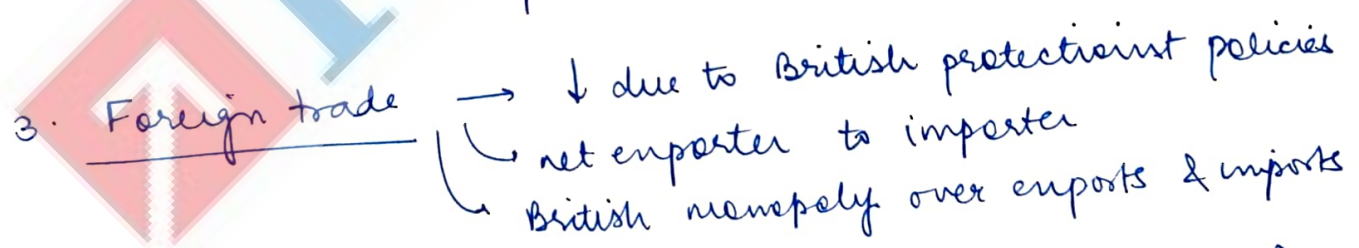 3. Foreign trade → ↓ due to British protectionist policies
net exporter to importer
British monopoly over exports & imports